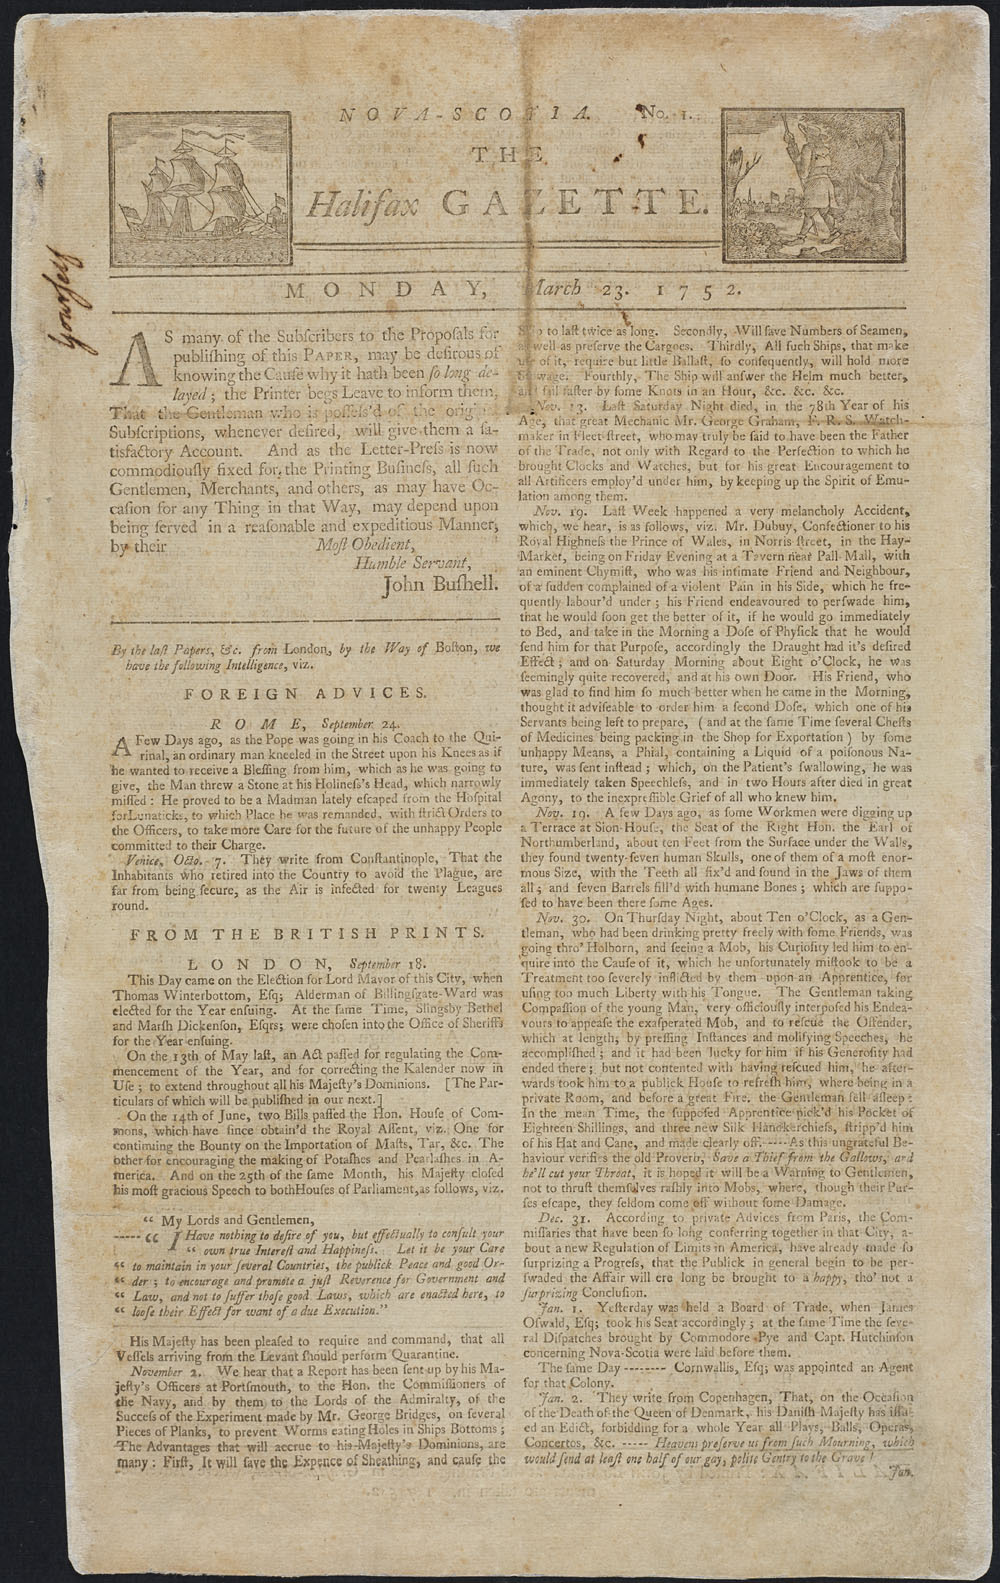 NOVA-SCOTIA. No. 1.
THE
Halifax GAZETTE.
MONDAY, March 23. 1752.
Yourself
AS many of the Subſcribers to the Propoſals for
publiſhing of this PAPER, may be deſirous of
knowing the Cauſe why it hath been ſo long de-
layed; the Printer begs Leave to inform them,
That the Gentleman who is poſſeſs'd of the original
Subſcriptions, whenever deſired, will give them a ſa-
tisfactory Account. And as the Letter-Preſs is now
commodiouſly fixed for the Printing Buſineſs, all ſuch
Gentlemen, Merchants, and others, as may have Oc-
caſion for any Thing in that Way, may depend upon
being ſerved in a reaſonable and expeditious Manner,
by their Moſt Obedient,
Humble Servant,
John Buſhell.
By the laſt Papers, &c. from London, by the Way of Boſton, we
have the following Intelligence, viz.
FOREIGN ADVICES.
ROME, September 24.
A Few Days ago, as the Pope was going in his Coach to the Qui-
rinal, an ordinary man kneeled in the Street upon his Knees as if
he wanted to receive a Bleſſing from him, which as he was going to
give, the Man threw a Stone at his Holineſs's Head, which narrowly
miſſed: He proved to be a Madman lately eſcaped from the Hoſpital
for Lunaticks, to which Place he was remanded, with ſtrict Orders to
the Officers, to take more Care for the future of the unhappy People
committed to their Charge.
Venice, Octo. 7. They write from Conſtantinople, That the
Inhabitants who retired into the Country to avoid the Plague, are
far from being ſecure, as the Air is infected for twenty Leagues
round.
FROM THE BRITISH PRINTS.
LONDON, September 18.
This Day came on the Election for Lord Mayor of this City, when
Thomas Winterbottom, Eſq; Alderman of Billingſgate-Ward was
elected for the Year enſuing. At the ſame Time, Slingsby Bethel
and Marſh Dickenſon, Eſqrs; were choſen into the Office of Sheriffs
for the Year enſuing.
On the 13th of May laſt, an Act paſſed for regulating the Com-
mencement of the Year, and for correcting the Kalender now in
Uſe; to extend throughout all his Majeſty's Dominions. [The Par-
ticulars of which will be publiſhed in our next.]
On the 14th of June, two Bills paſſed the Hon. Houſe of Com-
mons, which have ſince obtain'd the Royal Aſſent, viz. One for
continuing the Bounty on the Importation of Maſts, Tar, &c. The
other for encouraging the making of Potaſhes and Pearlaſhes in A-
merica. And on the 25th of the ſame Month, his Majeſty cloſed
his moſt gracious Speech to both Houſes of Parliament, as follows, viz.
“ My Lords and Gentlemen,
----- “ I Have nothing to deſire of you, but effectually to conſult your
“ own true Intereſt and Happineſs. Let it be your Care
“ to maintain in your ſeveral Countries, the publick Peace and good Or-
“ der; to encourage and promote a juſt Reverence for Government and
“ Law, and not to ſuffer thoſe good Laws, which are enacted here, to
“ looſe their Effect for want of a due Execution.”
His Majeſty has been pleaſed to require and command, that all
Veſſels arriving from the Levant ſhould perform Quarantine.
November 2. We hear that a Report has been ſent up by his Ma-
jeſty's Officers at Portſmouth, to the Hon. the Commiſſioners of
the Navy, and by them to the Lords of the Admiralty, of the
Succeſs of the Experiment made by Mr. George Bridges, on ſeveral
Pieces of Planks, to prevent Worms eating Holes in Ships Bottoms;
The Advantages that will accrue to his Majeſty's Dominions, are
many: Firſt, It will ſave the Expence of Sheathing, and cauſe the
Ship to laſt twice as long. Secondly, Will ſave Numbers of Seamen,
as well as preſerve the Cargoes. Thirdly, All ſuch Ships, that make
uſe of it, require but little Ballaſt, ſo conſequently, will hold more
Stowage. Fourthly, The Ship will anſwer the Helm much better,
and ſail faſter by ſome Knots in an Hour, &c. &c. &c.
Nov. 13. Laſt Saturday Night died, in the 78th Year of his
Age, that great Mechanic Mr. George Graham, F. R. S. Watch-
maker in Fleet-ſtreet, who may truly be ſaid to have been the Father
of the Trade, not only with Regard to the Perfection to which he
brought Clocks and Watches, but for his great Encouragement to
all Artificers employ'd under him, by keeping up the Spirit of Emu-
lation among them.
Nov. 19. Laſt Week happened a very melancholy Accident,
which, we hear, is as follows, viz. Mr. Dubuy, Confectioner to his
Royal Highneſs the Prince of Wales, in Norris ſtreet, in the Hay-
Market, being on Friday Evening at a Tavern near Pall-Mall, with
an eminent Chymiſt, who was his intimate Friend and Neighbour,
of a ſudden complained of a violent Pain in his Side, which he fre-
quently labour'd under; his Friend endeavoured to perſwade him,
that he would ſoon get the better of it, if he would go immediately
to Bed, and take in the Morning a Doſe of Phyſick that he would
ſend him for that Purpoſe, accordingly the Draught had it's deſired
Effect; and on Saturday Morning about Eight o'Clock, he was
ſeemingly quite recovered, and at his own Door. His Friend, who
was glad to find him ſo much better when he came in the Morning,
thought it adviſeable to order him a ſecond Doſe, which one of his
Servants being left to prepare, (and at the ſame Time ſeveral Cheſts
of Medicines being packing in the Shop for Exportation) by ſome
unhappy Means, a Phial, containing a Liquid of a poiſonous Na-
ture, was ſent inſtead; which, on the Patient's ſwallowing, he was
immediately taken Speechleſs, and in two Hours after died in great
Agony, to the inexpreſſible Grief of all who knew him.
Nov. 19. A few Days ago, as ſome Workmen were digging up
a Terrace at Sion-Houſe, the Seat of the Right Hon. the Earl of
Northumberland, about ten Feet from the Surface under the Walls,
they found twenty-ſeven human Skulls, one of them of a moſt enor-
mous Size, with the Teeth all fix'd and ſound in the Jaws of them
all; and ſeven Barrels fill'd with humane Bones; which are ſuppo-
ſed to have been there ſome Ages.
Nov. 30. On Thurſday Night, about Ten o'Clock, as a Gen-
tleman, who had been drinking pretty freely with ſome Friends, was
going thro' Holborn, and ſeeing a Mob, his Curioſity led him to en-
quire into the Cauſe of it, which he unfortunately miſtook to be a
Treatment too ſeverely inflicted by them upon an Apprentice, for
uſing too much Liberty with his Tongue. The Gentleman taking
Compaſſion of the young Man, very officiouſly interpoſed his Endea-
vours to appeaſe the exaſperated Mob, and to reſcue the Offender,
which at length, by preſſing Inſtances and moliſying Speeches, he
accompliſhed; and it had been lucky for him if his Generoſity had
ended there; but not contented with having reſcued him, he after-
wards took him to a publick Houſe to refreſh him, where being in a
private Room, and before a great Fire, the Gentleman fell aſleep:
In the mean Time, the ſuppoſed Apprentice pick'd his Pocket of
Eighteen Shillings, and three new Silk Handkerchiefs, ſtripp'd him
of his Hat and Cane, and made clearly off.-----As this ungrateful Be-
haviour verifies the old Proverb, Save a Thief from the Gallows, and
he'll cut your Throat, it is hoped it will be a Warning to Gentlemen,
not to thruſt themſelves raſhly into Mobs, where, though their Pur-
ſes eſcape, they ſeldom come off without ſome Damage.
Dec. 31. According to private Advices from Paris, the Com-
miſſaries that have been ſo long conferring together in that City, a-
bout a new Regulation of Limits in America, have already made ſo
ſurprizing a Progreſs, that the Publick in general begin to be per-
ſwaded the Affair will ere long be brought to a happy, tho' not a
ſurprizing Concluſion.
Jan. 1. Yeſterday was held a Board of Trade, when James
Oſwald, Eſq; took his Seat accordingly; at the ſame Time the ſeve-
ral Diſpatches brought by Commodore Pye and Capt. Hutchinſon
concerning Nova-Scotia were laid before them.
The ſame Day -------- Cornwallis, Eſq; was appointed an Agent
for that Colony.
Jan. 2. They write from Copenhagen, That, on the Occaſion
of the Death of the Queen of Denmark, his Daniſh Majeſty has iſſu-
ed an Edict, forbidding for a whole Year all Plays, Balls, Operas,
Concertos, &c. ----- Heavens preſerve us from ſuch Mourning, which
would ſend at leaſt one half of our gay, polite Gentry to the Grave!
Jan.